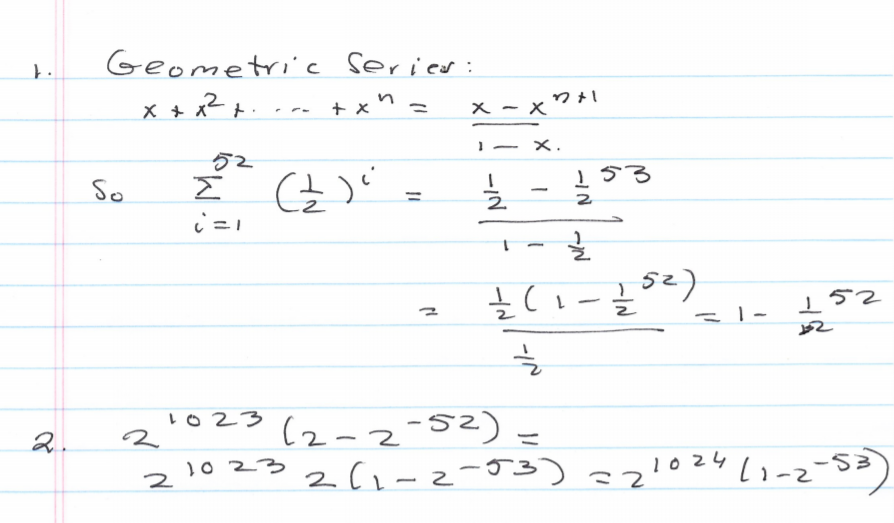 1. Geometric Series:
x + x² + . . . . + xⁿ = (x - xⁿ⁺¹)/(1 - x.)
So Σ_{i=1}^{52} (1/2)^i = (1/2 - 1/2^53)/(1 - 1/2)
= (1/2 (1 - 1/2^52))/(1/2) = 1 - 1/2^52
2. 2^1023 (2 - 2^-52) =
2^1023 2 (1 - 2^-53) = 2^1024 (1 - 2^-53)